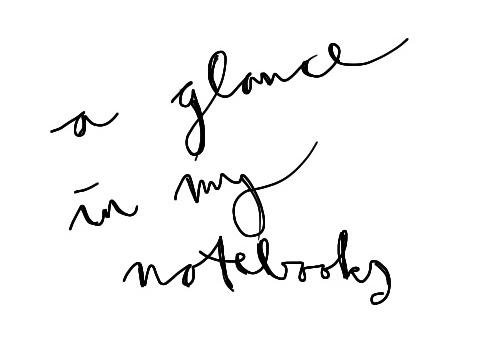 a glance
in my
notebooks